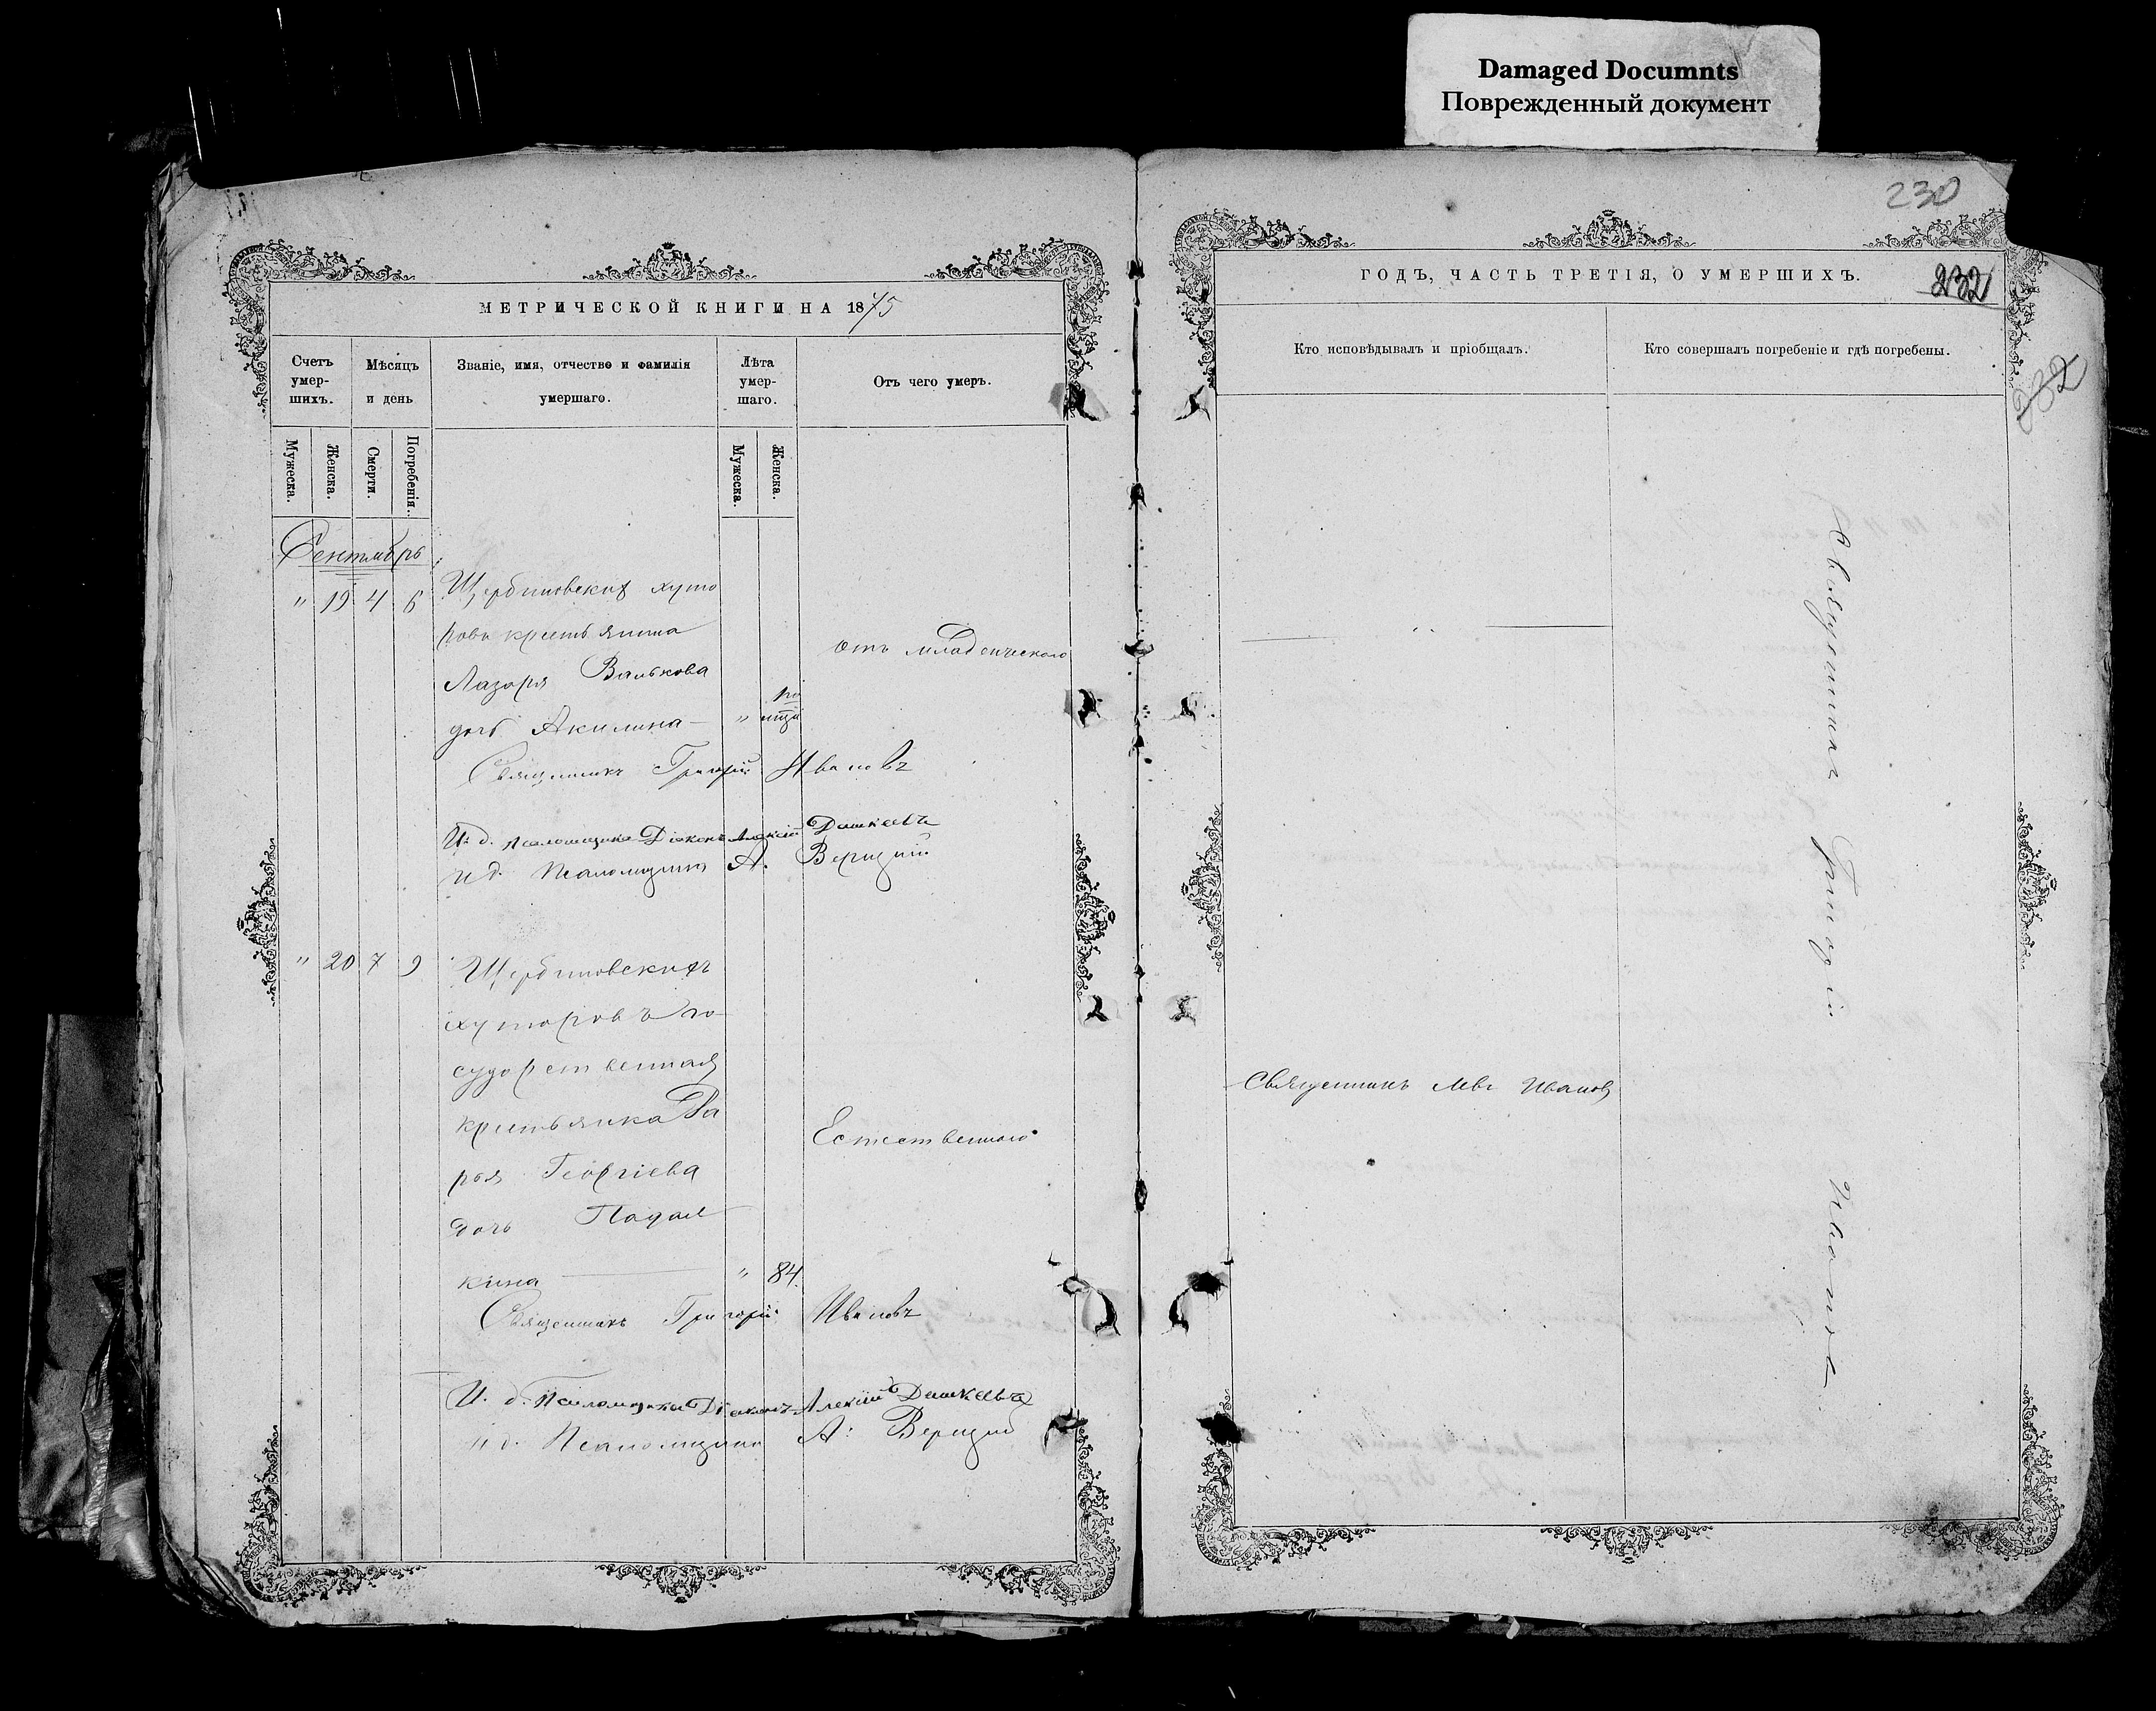 Damaged Documnts
Поврежденный документ
МЕТРИЧЕСКОЙ КНИГИ НА 1875
Счетъ умер-шихъ.
Мѣсяцъ и день
Званіе, имя, отчество и фамилія умершаго.
Лѣта умер-шаго.
Отъ чего умеръ.
Мужеска.
Женска.
Смерти.
Погребенія.
Мужеска.
Женска.
Сентябрь
" 19 4 6 Щербиновскихъ хуто
ровъ крестьянина
отъ младенческаго
Лазаря Валькова
дочь Акилина — "
Священникъ Григорій Ивановъ
И. д. Псаломщика Діаконъ Алексій Дашкеевъ
и д. Псаломщика А. Верицкій
" 20 7 9 Щербиновскихъ
хуторовъ го
сударственная
крестьянка Да
Естественного
рья Георгіева
дочь
кина — " 84.
Священникъ Григорій Ивановъ
И. д. Псаломщика Діаконъ Алексій Дашкеевъ
и д. Псаломщика А. Верицкій
230
ГОДЪ, ЧАСТЬ ТРЕТІЯ, О УМЕРШИХЪ.
232
Кто исповѣдывалъ и пріобщалъ.
Кто совершалъ погребеніе и гдѣ погребены.
232
Священникъ Григорій Ивановъ
Священникъ Левъ Ивановъ